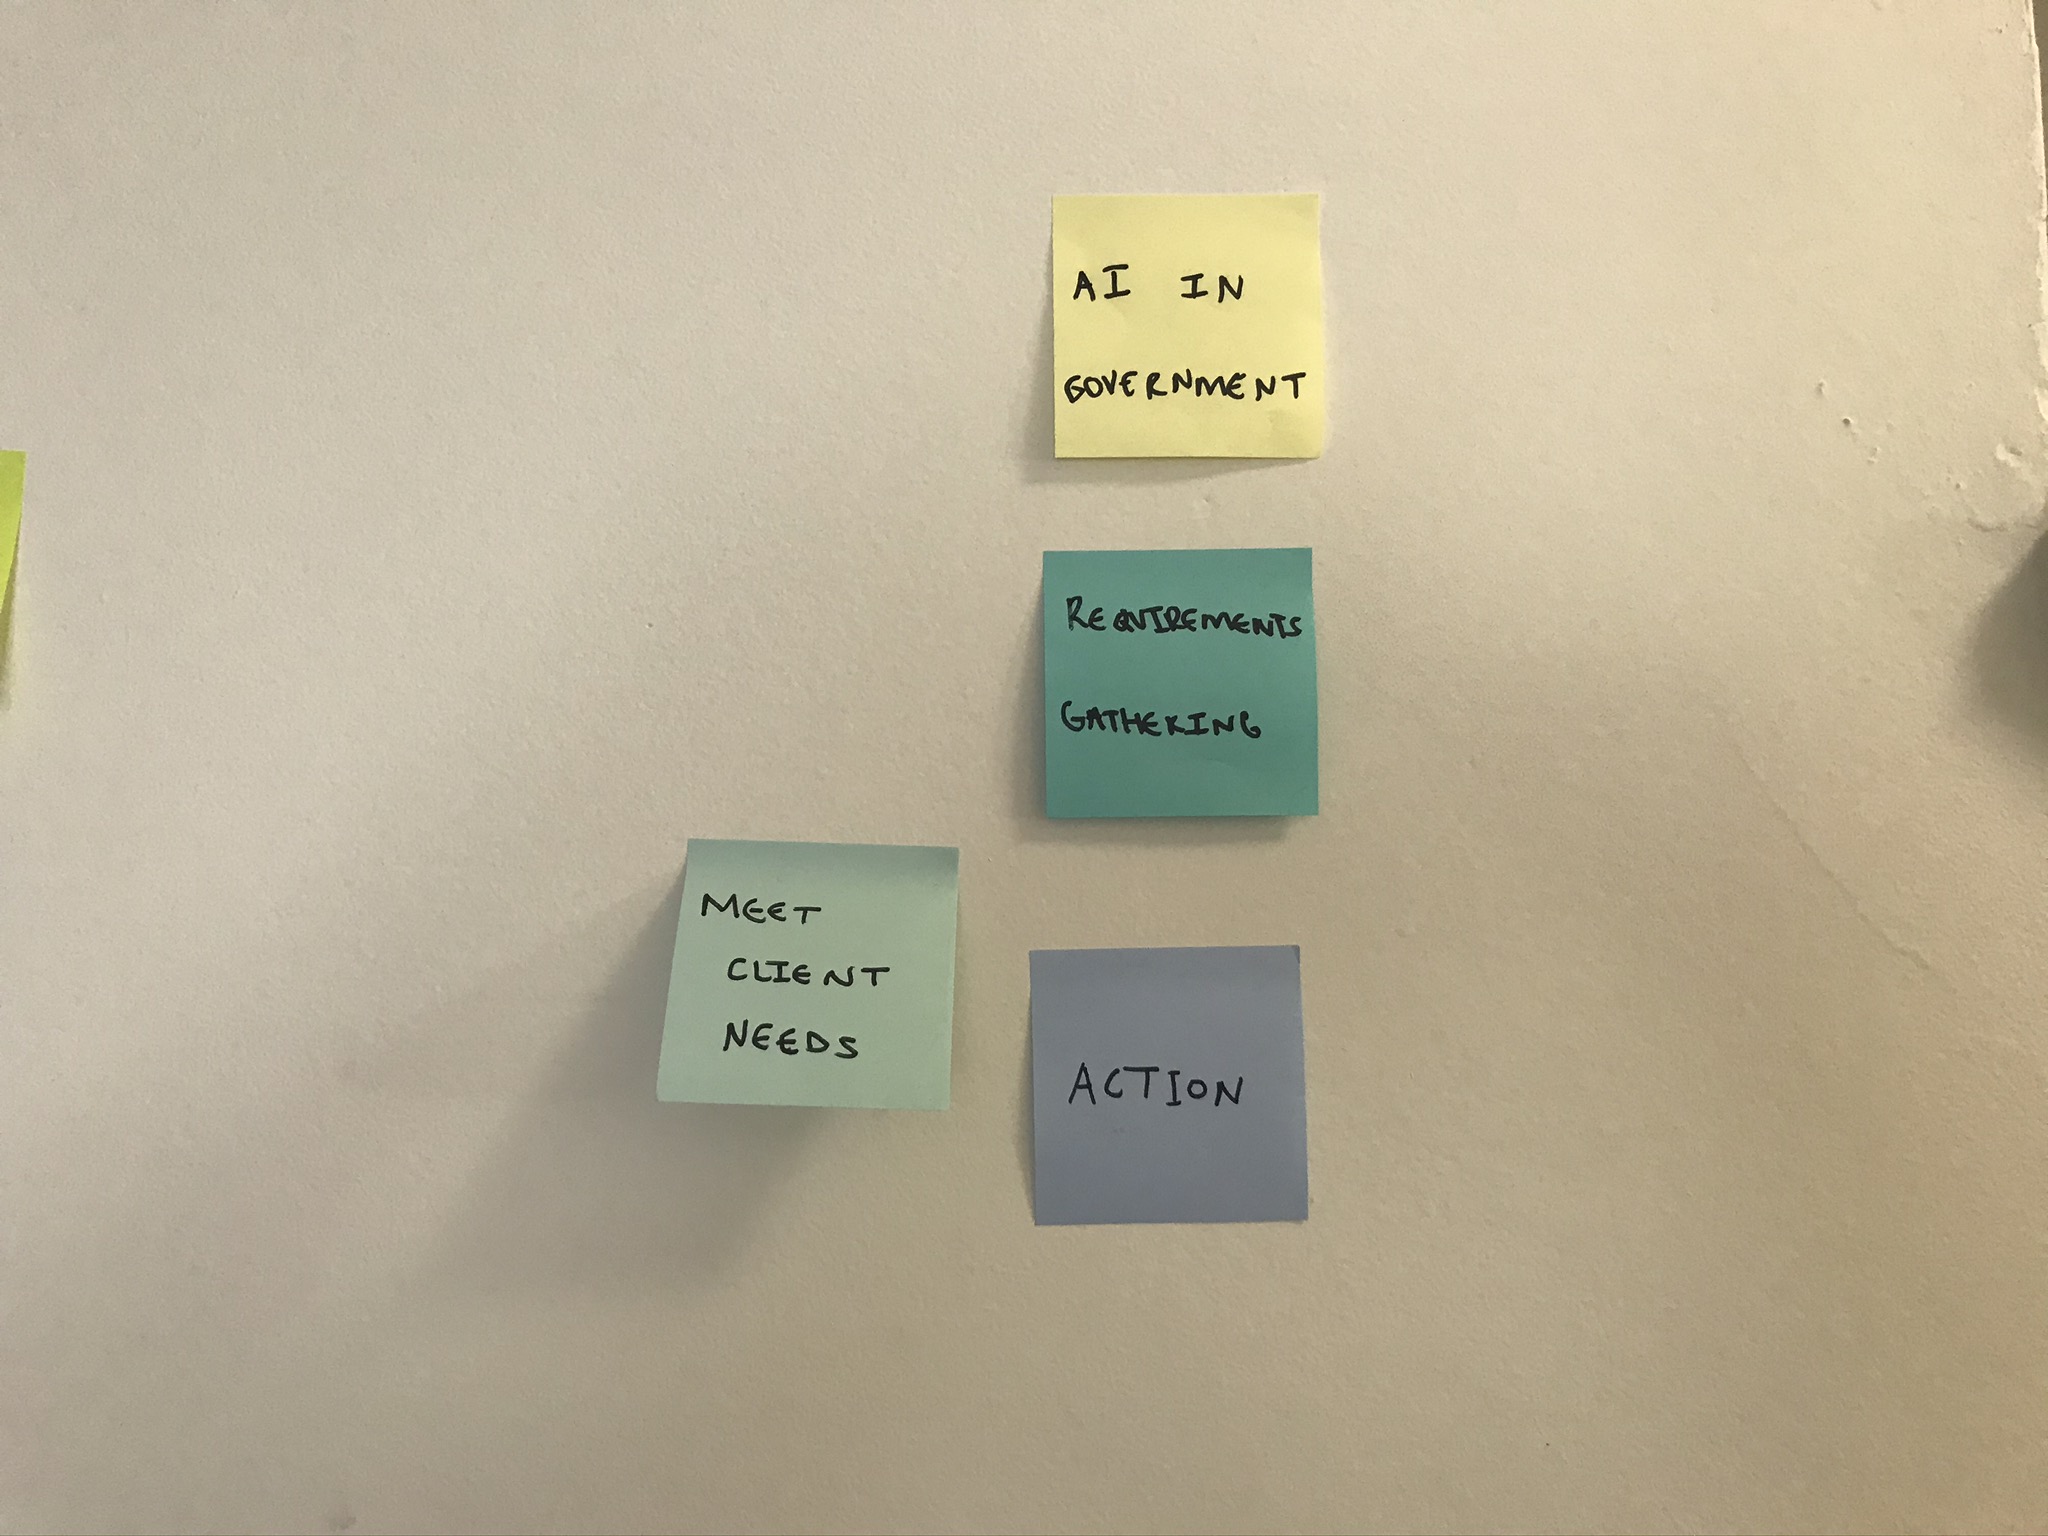 AI IN
GOVERNMENT
REQUIREMENTS
GATHERING
MEET
CLIENT
NEEDS
ACTION